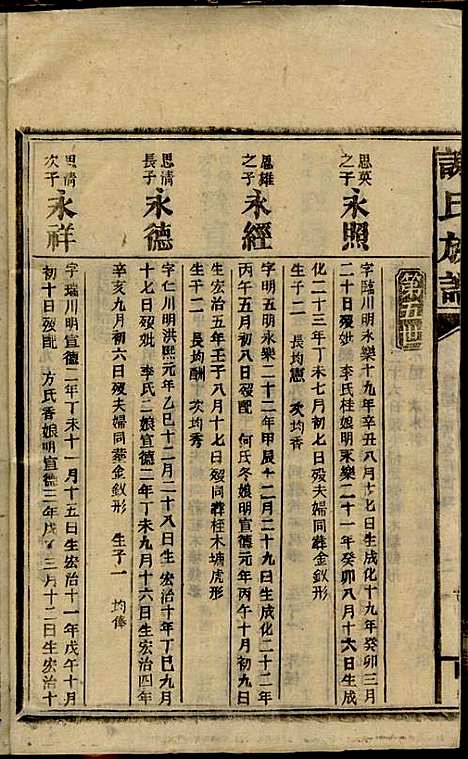 謝氏族譜
第五世
思英
之子
永照
字臨川明永樂十九年辛丑八月十七日生成化十九年癸卯三月
二十日歿妣 李氏桂娘明永樂二十一年癸卯八月十六日生成
化二十三年丁未七月初七日歿夫婦同葬金釵形
生子二 長均憲 次均香
思雄
之子
永經
字明五明永樂二十二年甲辰十二月二十九日生成化二十二年
丙午五月初八日歿配 何氏冬娘明宣德元年丙午十月初九日
生宏治五年壬子八月十七日歿同葬桂木塘虎形
生子二 長均酬 次均秀
思清
長子
永德
字仁川明洪熙元年乙巳十二月二十八日生宏治十年丁巳九月
十七日歿妣 李氏二娘宣德二年丁未九月十六日生宏治四年
辛亥九月初六日歿夫婦同葬金釵形 生子一 均俸
思清
次子
永祥
字瑞川明宣德二年丁未十一月十五日生宏治十一年戊午十月
初十日歿配 方氏香娘明宣德三年戊 三月十二日生宏治十